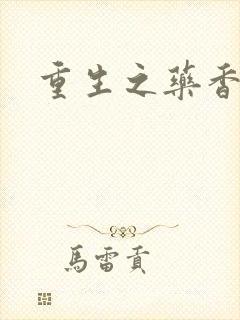 重生之藥香
馬雷貢